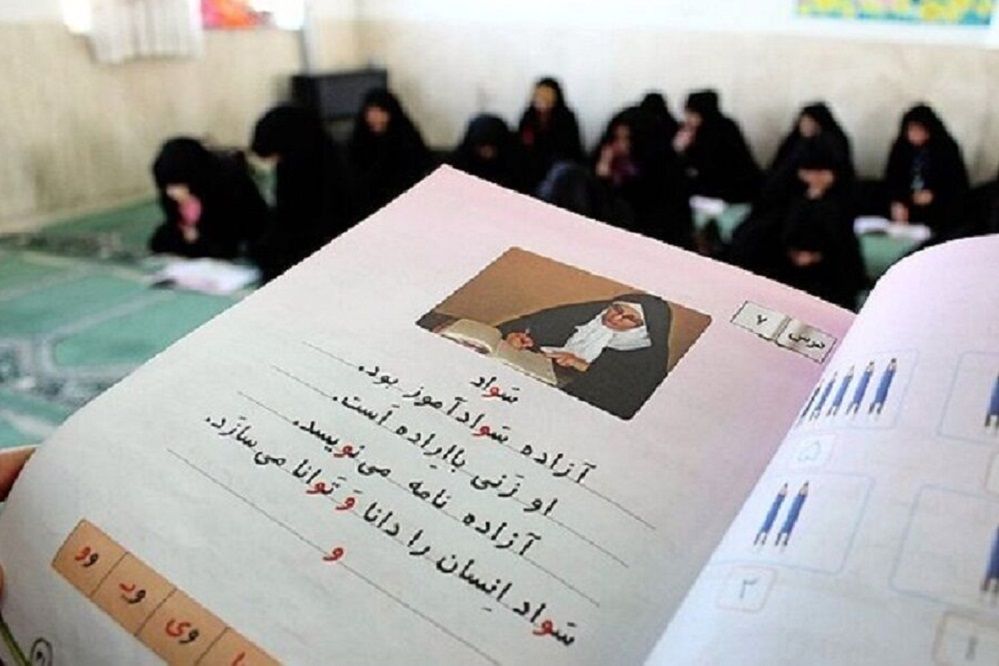 درس ۷
سَواد
آزاده سَوادآموز بود.
او زَنی بااِراده اَست.
آزاده نامه می‌نویسد.
سَواد اِنسان را دانا وَ تَوانا می‌سازَد.
و
وو
ویـ
وی
۵
۲